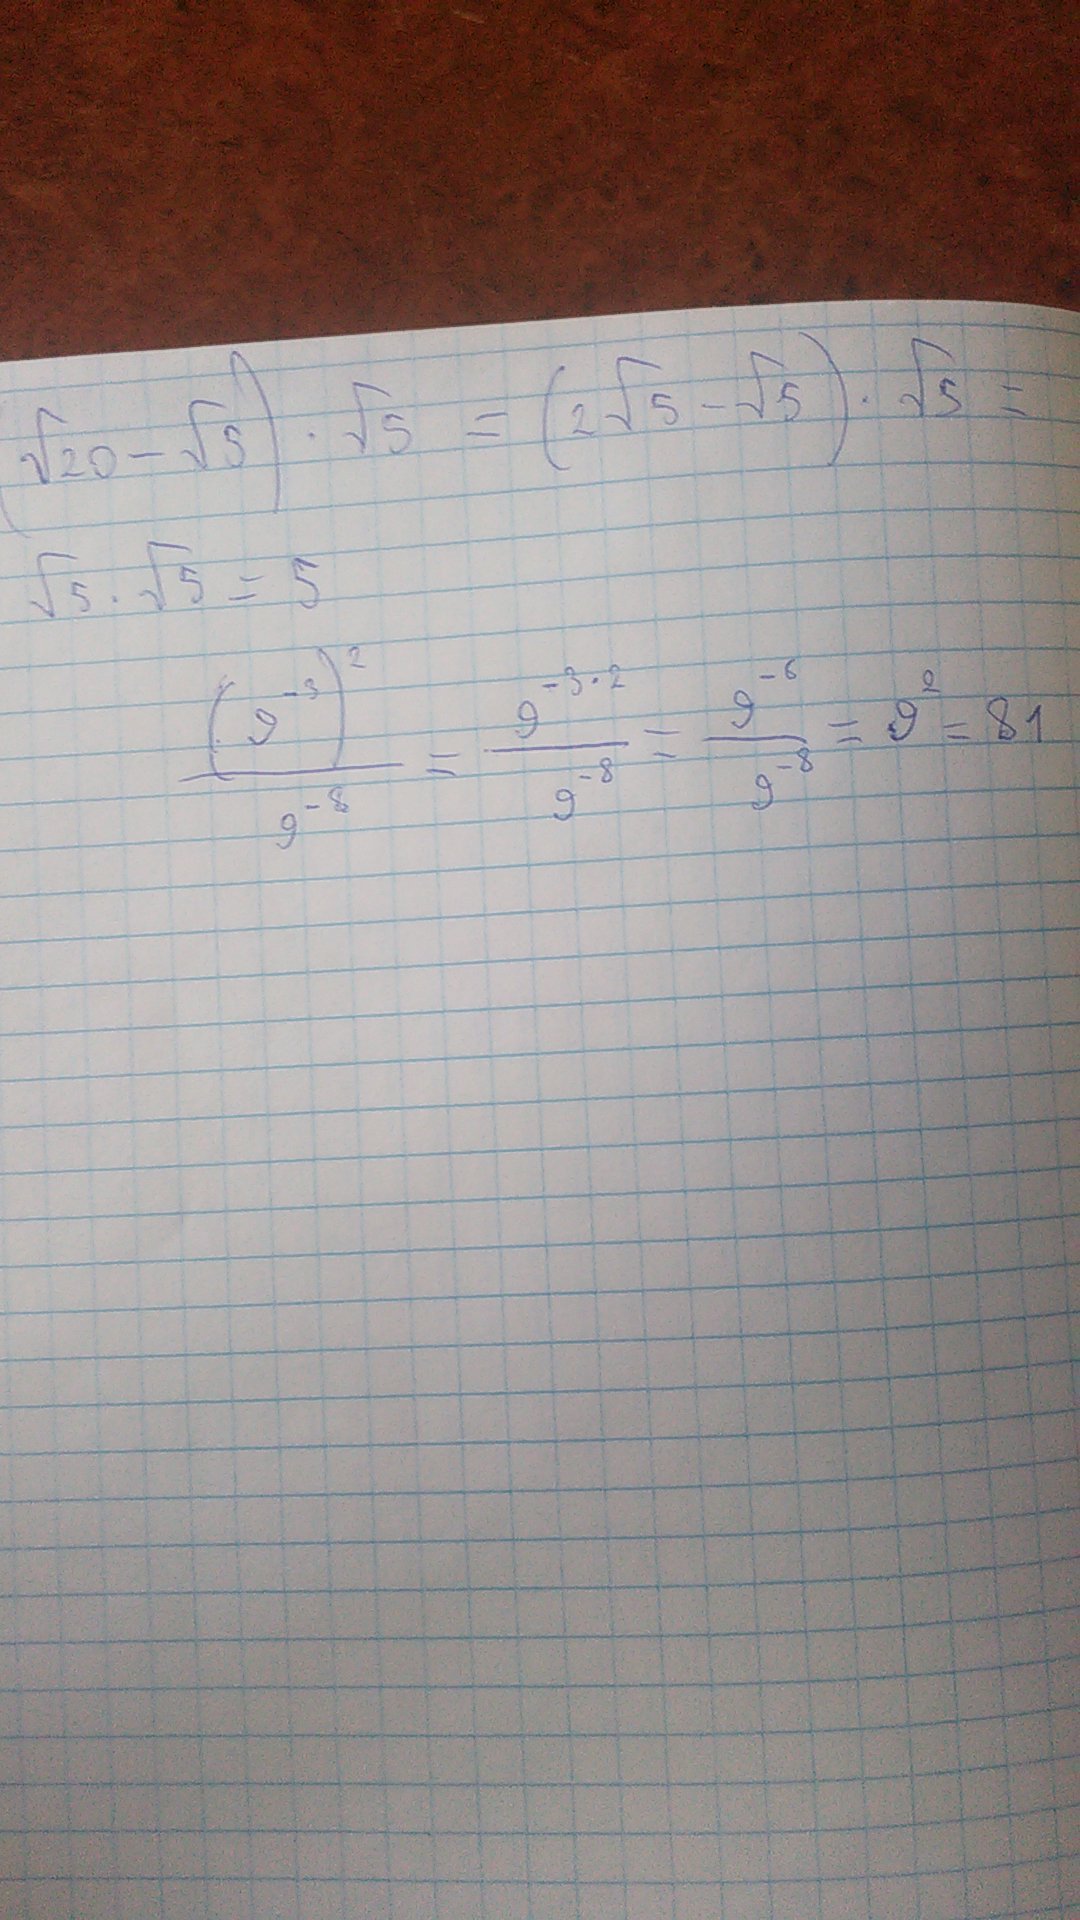 (√20 − √5) · √5 = (2√5 − √5) · √5 =
√5 · √5 = 5
(9⁻³)² / 9⁻⁸ = 9⁻³·² / 9⁻⁸ = 9⁻⁶ / 9⁻⁸ = 9² = 81